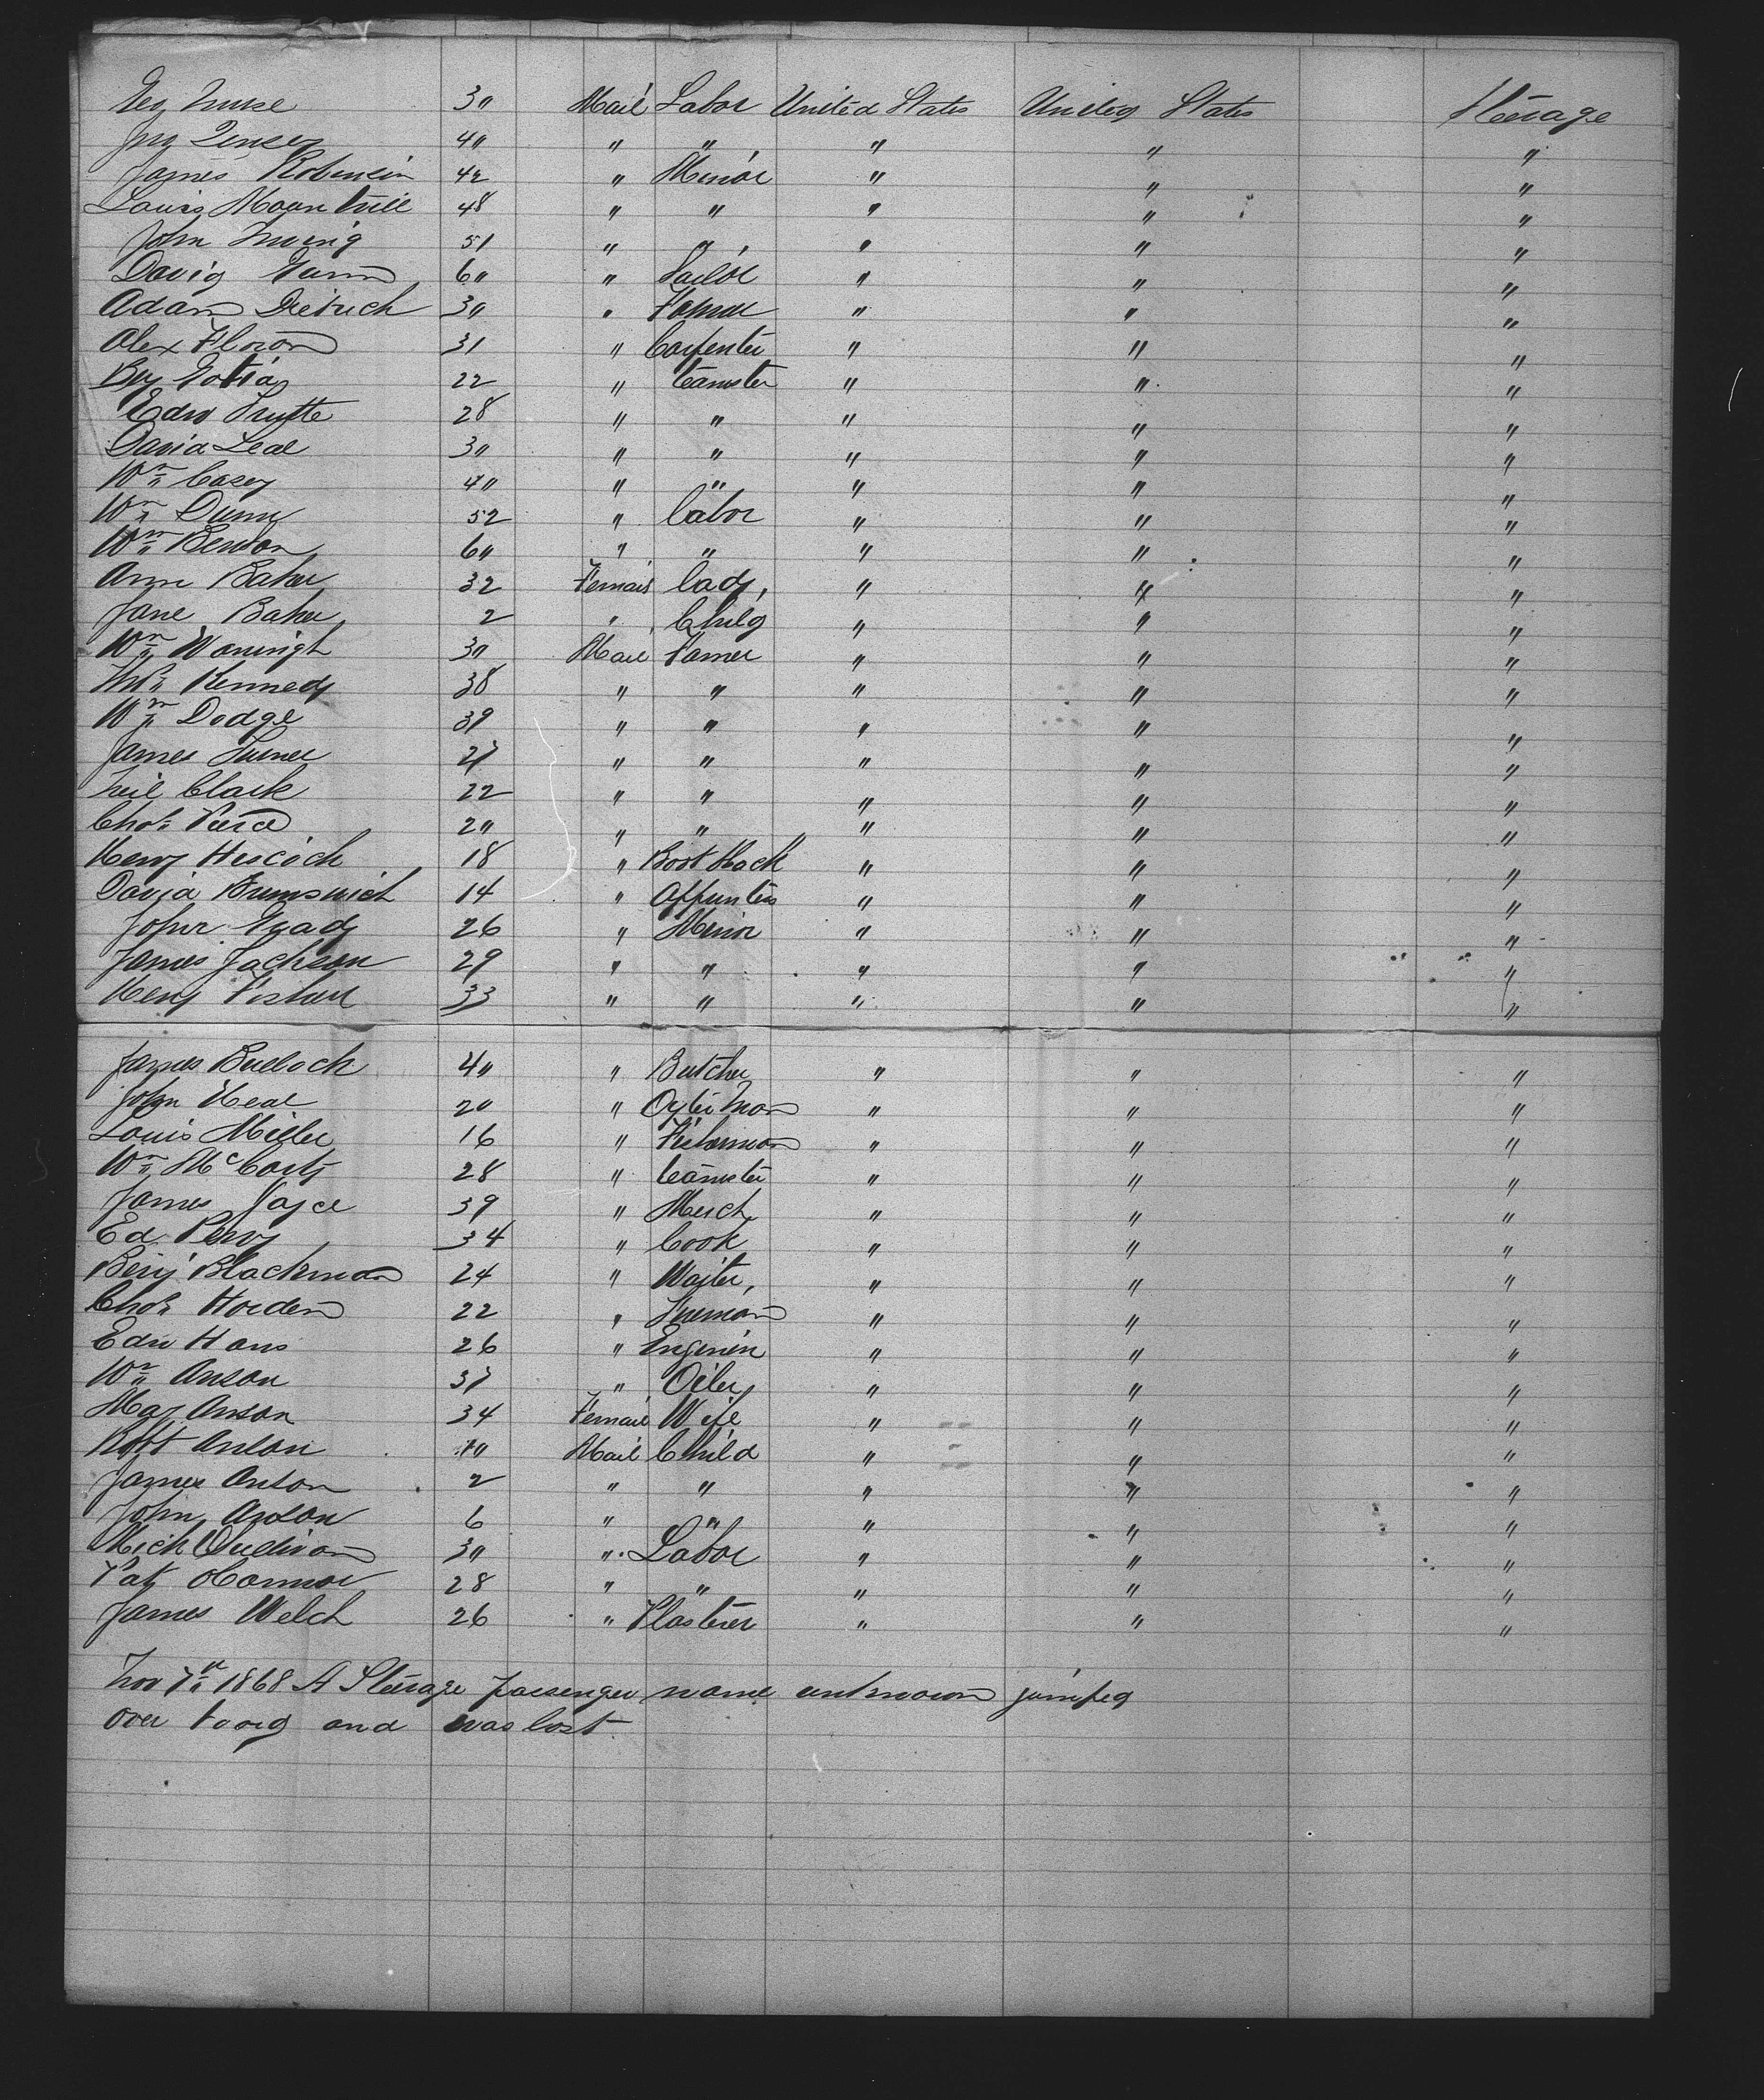 Geo Nurse 30 Mail Labor United States United States Steerage
Jno 40 " " " " "
James Robinson 42 " Minor " " "
Louis Mountville 48 " " " " "
John Irving 51 " " " " "
David Gunn 60 " Sailor " " "
Adam Dietrich 30 " Farmer " " "
Alex 31 " Carpenter " " "
22 " teamster " " "
Edw 28 " " " " "
David Leal 30 " " " " "
Wm Casey 40 " " " " "
Wm Dunn 52 " labor " " "
Wm Benson 60 " " " " "
Ann Baker 32 Femail lady, " " "
Jane Baker 2 " Child " " "
Wm 30 Mail Farmer " " "
Thos Kennedy 38 " " " " "
Wm Dodge 39 " " " " "
James Turner 27 " " " " "
Neil Clark 22 " " " " "
Chas Pierce 20 " " " " "
Henry Hiscock 18 " Boot Black " " "
David Brunswick 14 " " " "
John Grady 26 " Minor " " "
James Jackson 29 " " " " "
Henry 33 " " " " "
James Bullock 40 " Butcher " " "
John Neal 20 " Oyster Man " " "
Louis Miller 16 " Fisherman " " "
Wm McCarty 28 " teamster " " "
James Joyce 39 " Merch " " "
Ed Perry 34 " Cook " " "
Benj Blackman 24 " Waiter, " " "
Chas Horden 22 " Fireman " " "
Edw Hans 26 " " " "
Wm Anson 37 " Oiler " " "
May Anson 34 Femail Wife " " "
Robt Anson 10 Mail Child " " "
James Anson 2 " " " " "
John Anson 6 " " " " "
Mich OSullivan 30 " Labor " " "
Pat OConnor 28 " " " " "
James Welch 26 " Plasterer " " "
Nov 7th 1868 A Steerage passenger name unknown jumped
over board and was lost